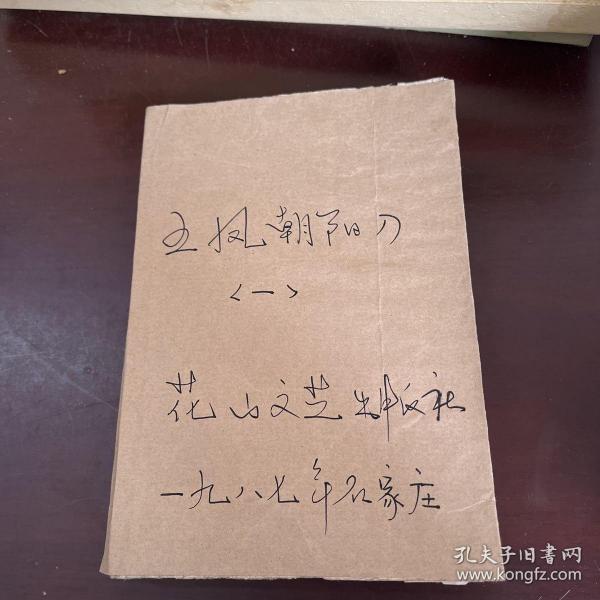 五凤朝阳刀
<一>
花山文艺出版社
一九八七年石家庄
孔夫子旧书网
www.kongfz.com